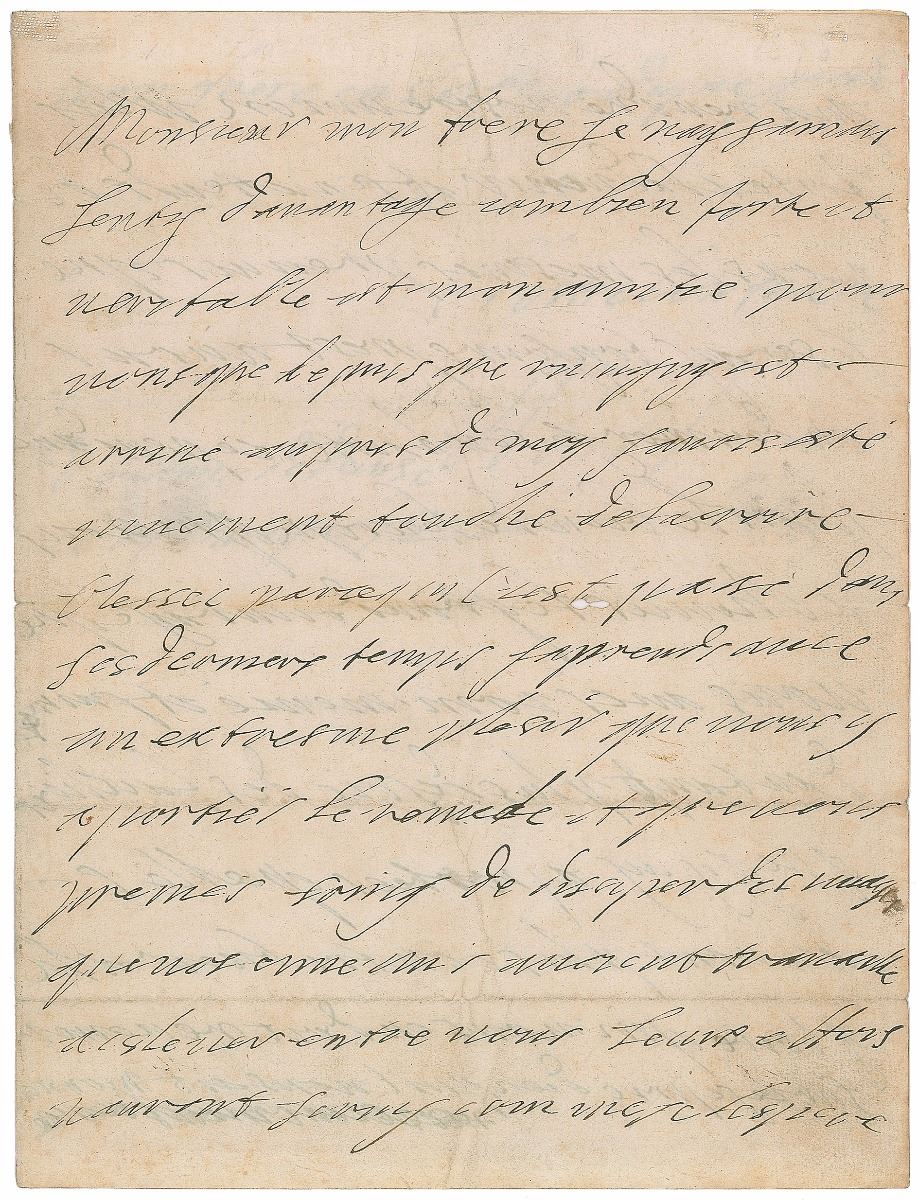 Monsieur mon frere Je nay jamais
senty davantage combien forte et
veritable est mon amitié pour
vous que depuis que est
arrivé aupres de moy javois esté
vivement touché de lavoire
blessée par ce qui sest passé dans
ses derniers temps japrends avec
un extresme plesir que vous y
aportiés le remede et que vous
prenies soing de disiper des nuages
que nos ennemis avoient travaillé
a eslever entre nous leurs effors
nauront servy comme je lespere